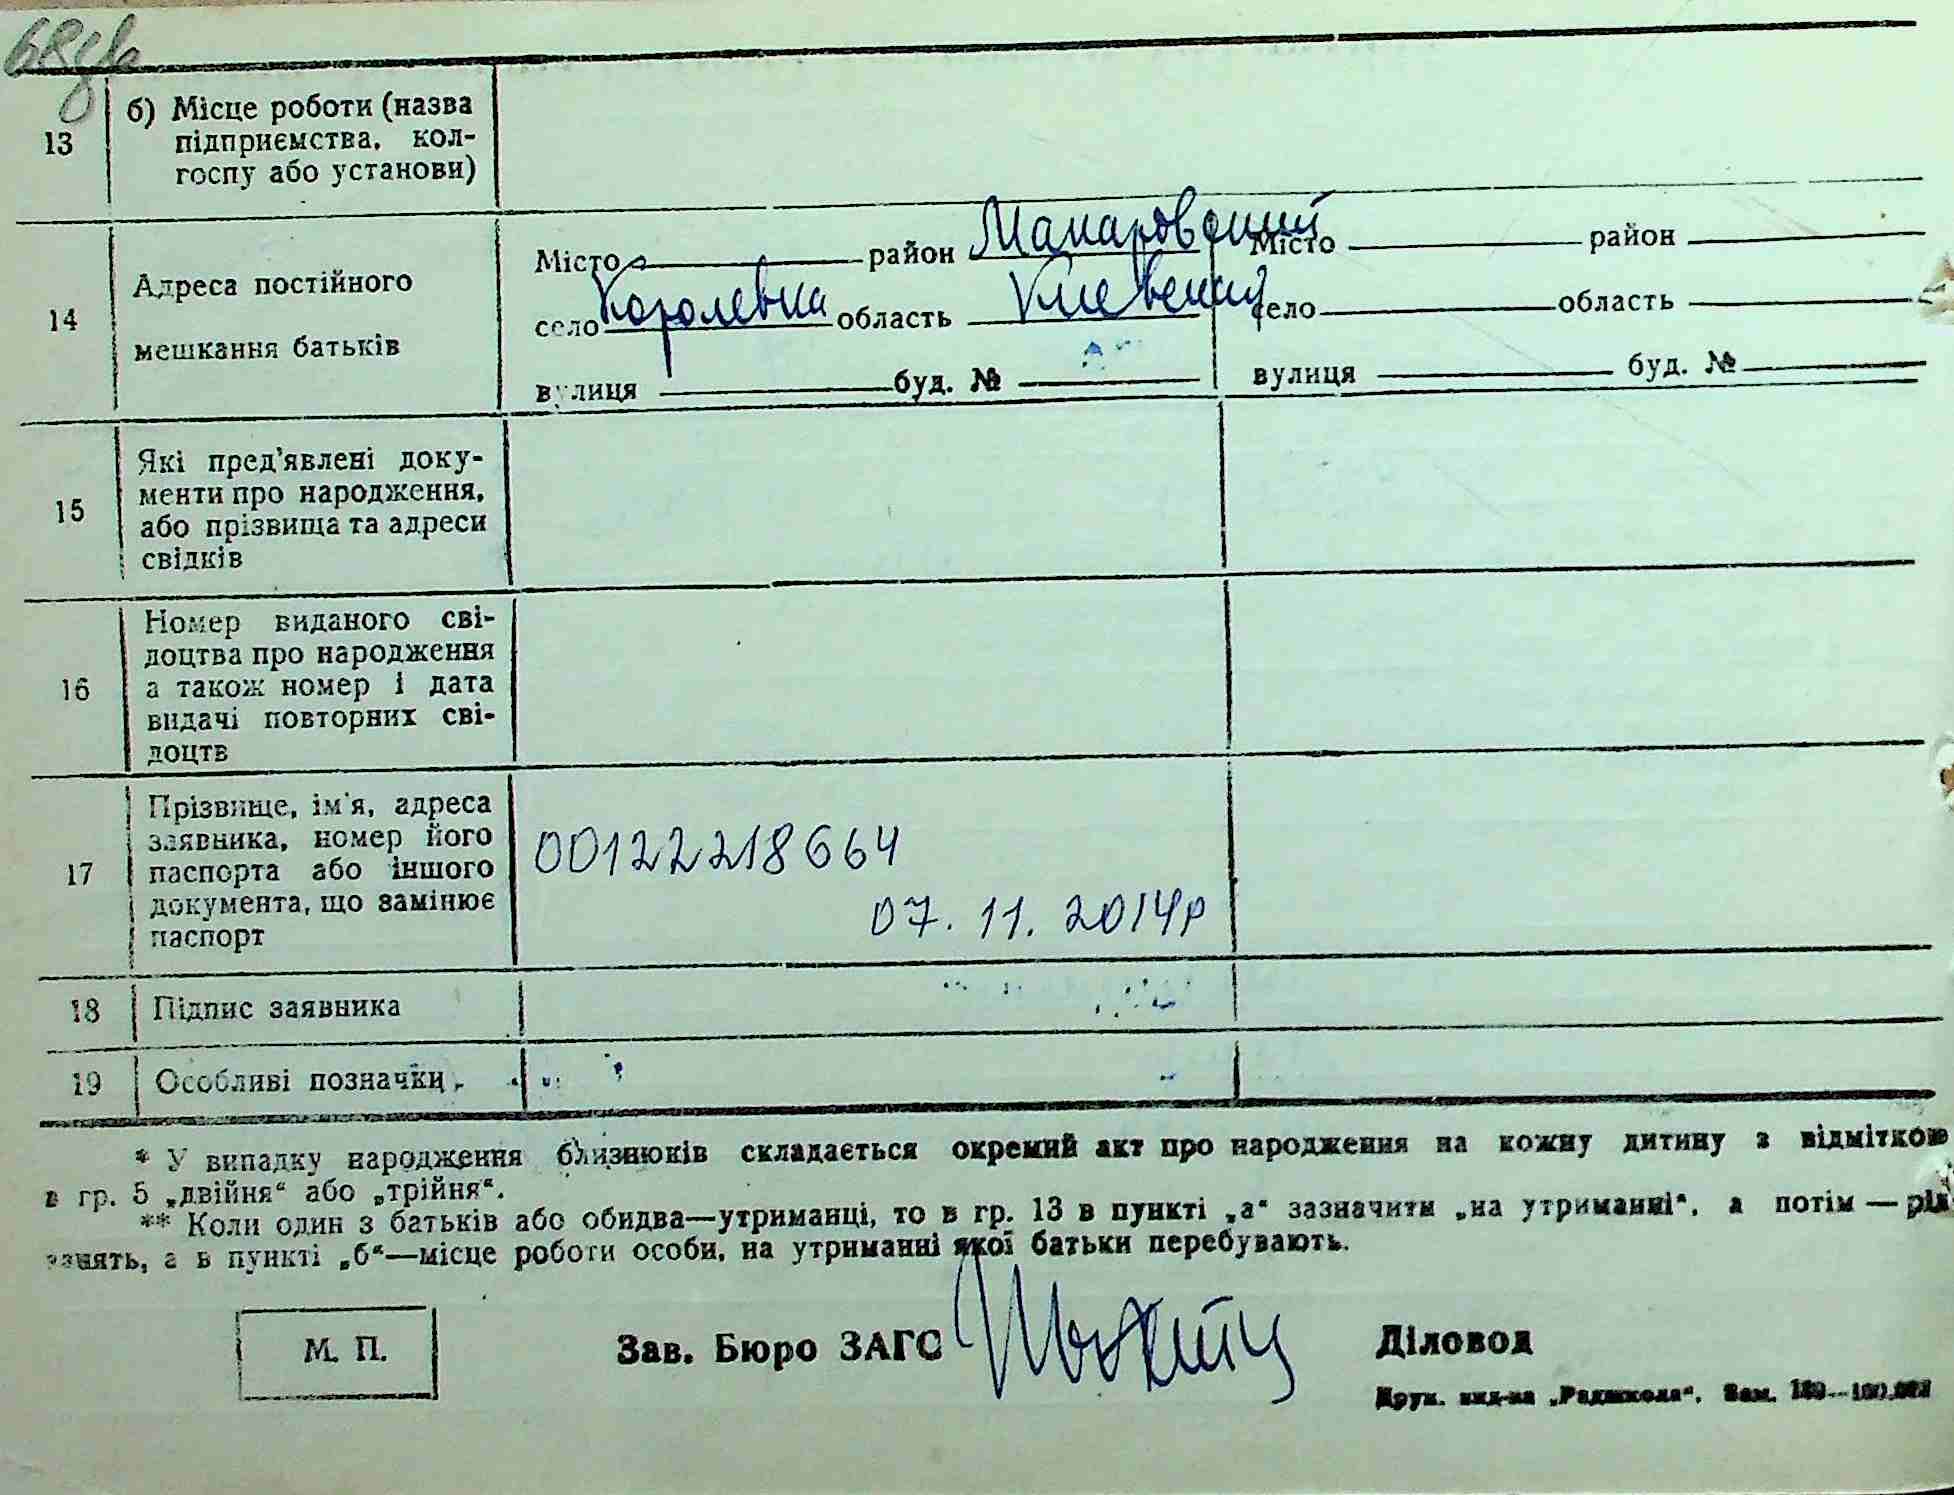 68зв
13
б) Місце роботи (назва
підприємства, кол-
госпу або установи)
14
Адреса постійного
мешкання батьків
Місто район Макаровский
село Королевка область Киевский
вулиця буд. №
Місто район
село область
вулиця буд. №
15
Які пред'явлені доку-
менти про народження,
або прізвища та адреси
свідків
16
Номер виданого сві-
доцтва про народження
а також номер і дата
видачі повторних сві-
доцтв
17
Прізвище, ім'я, адреса
заявника, номер його
паспорта або іншого
документа, що замінює
паспорт
00122218664
07.11.2014р
18 Підпис заявника
19 Особливі позначки
* У випадку народження близнюків складається окремий акт про народження на кожну дитину з відміткою
в гр. 5 „двійня“ або „трійня“.
** Коли один з батьків або обидва—утриманці, то в гр. 13 в пункті „а“ зазначити „на утриманні“, а потім — рід
занять, а в пункті „б“—місце роботи особи, на утриманні якої батьки перебувають.
М. П.
Зав. Бюро ЗАГС
Діловод
Друк. вид-ва „Радшкола“. Зам.